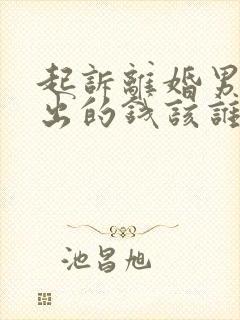 起訴離婚男
出的钱該誰
池昌旭